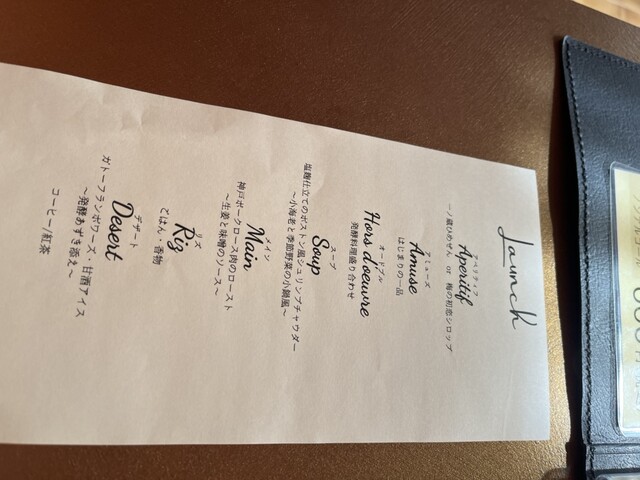 Launch
アペリティフ
Aperitif
一ノ蔵ひめぜん or 梅の初恋シロップ
アミューズ
Amuse
はじまりの一品
オードブル
Hors doeuvre
発酵料理盛り合わせ
スープ
Soup
塩麹仕立てのボストン風シュリンプチャウダー
～小海老と季節野菜の小鍋風～
メイン
Main
神戸ポークロース肉のロースト
～生姜と味噌のソース～
リズ
Riz
ごはん 香物
デザート
Desert
ガトーフランボワーズ、甘酒アイス
～発酵あずき添え～
コーヒー/紅茶